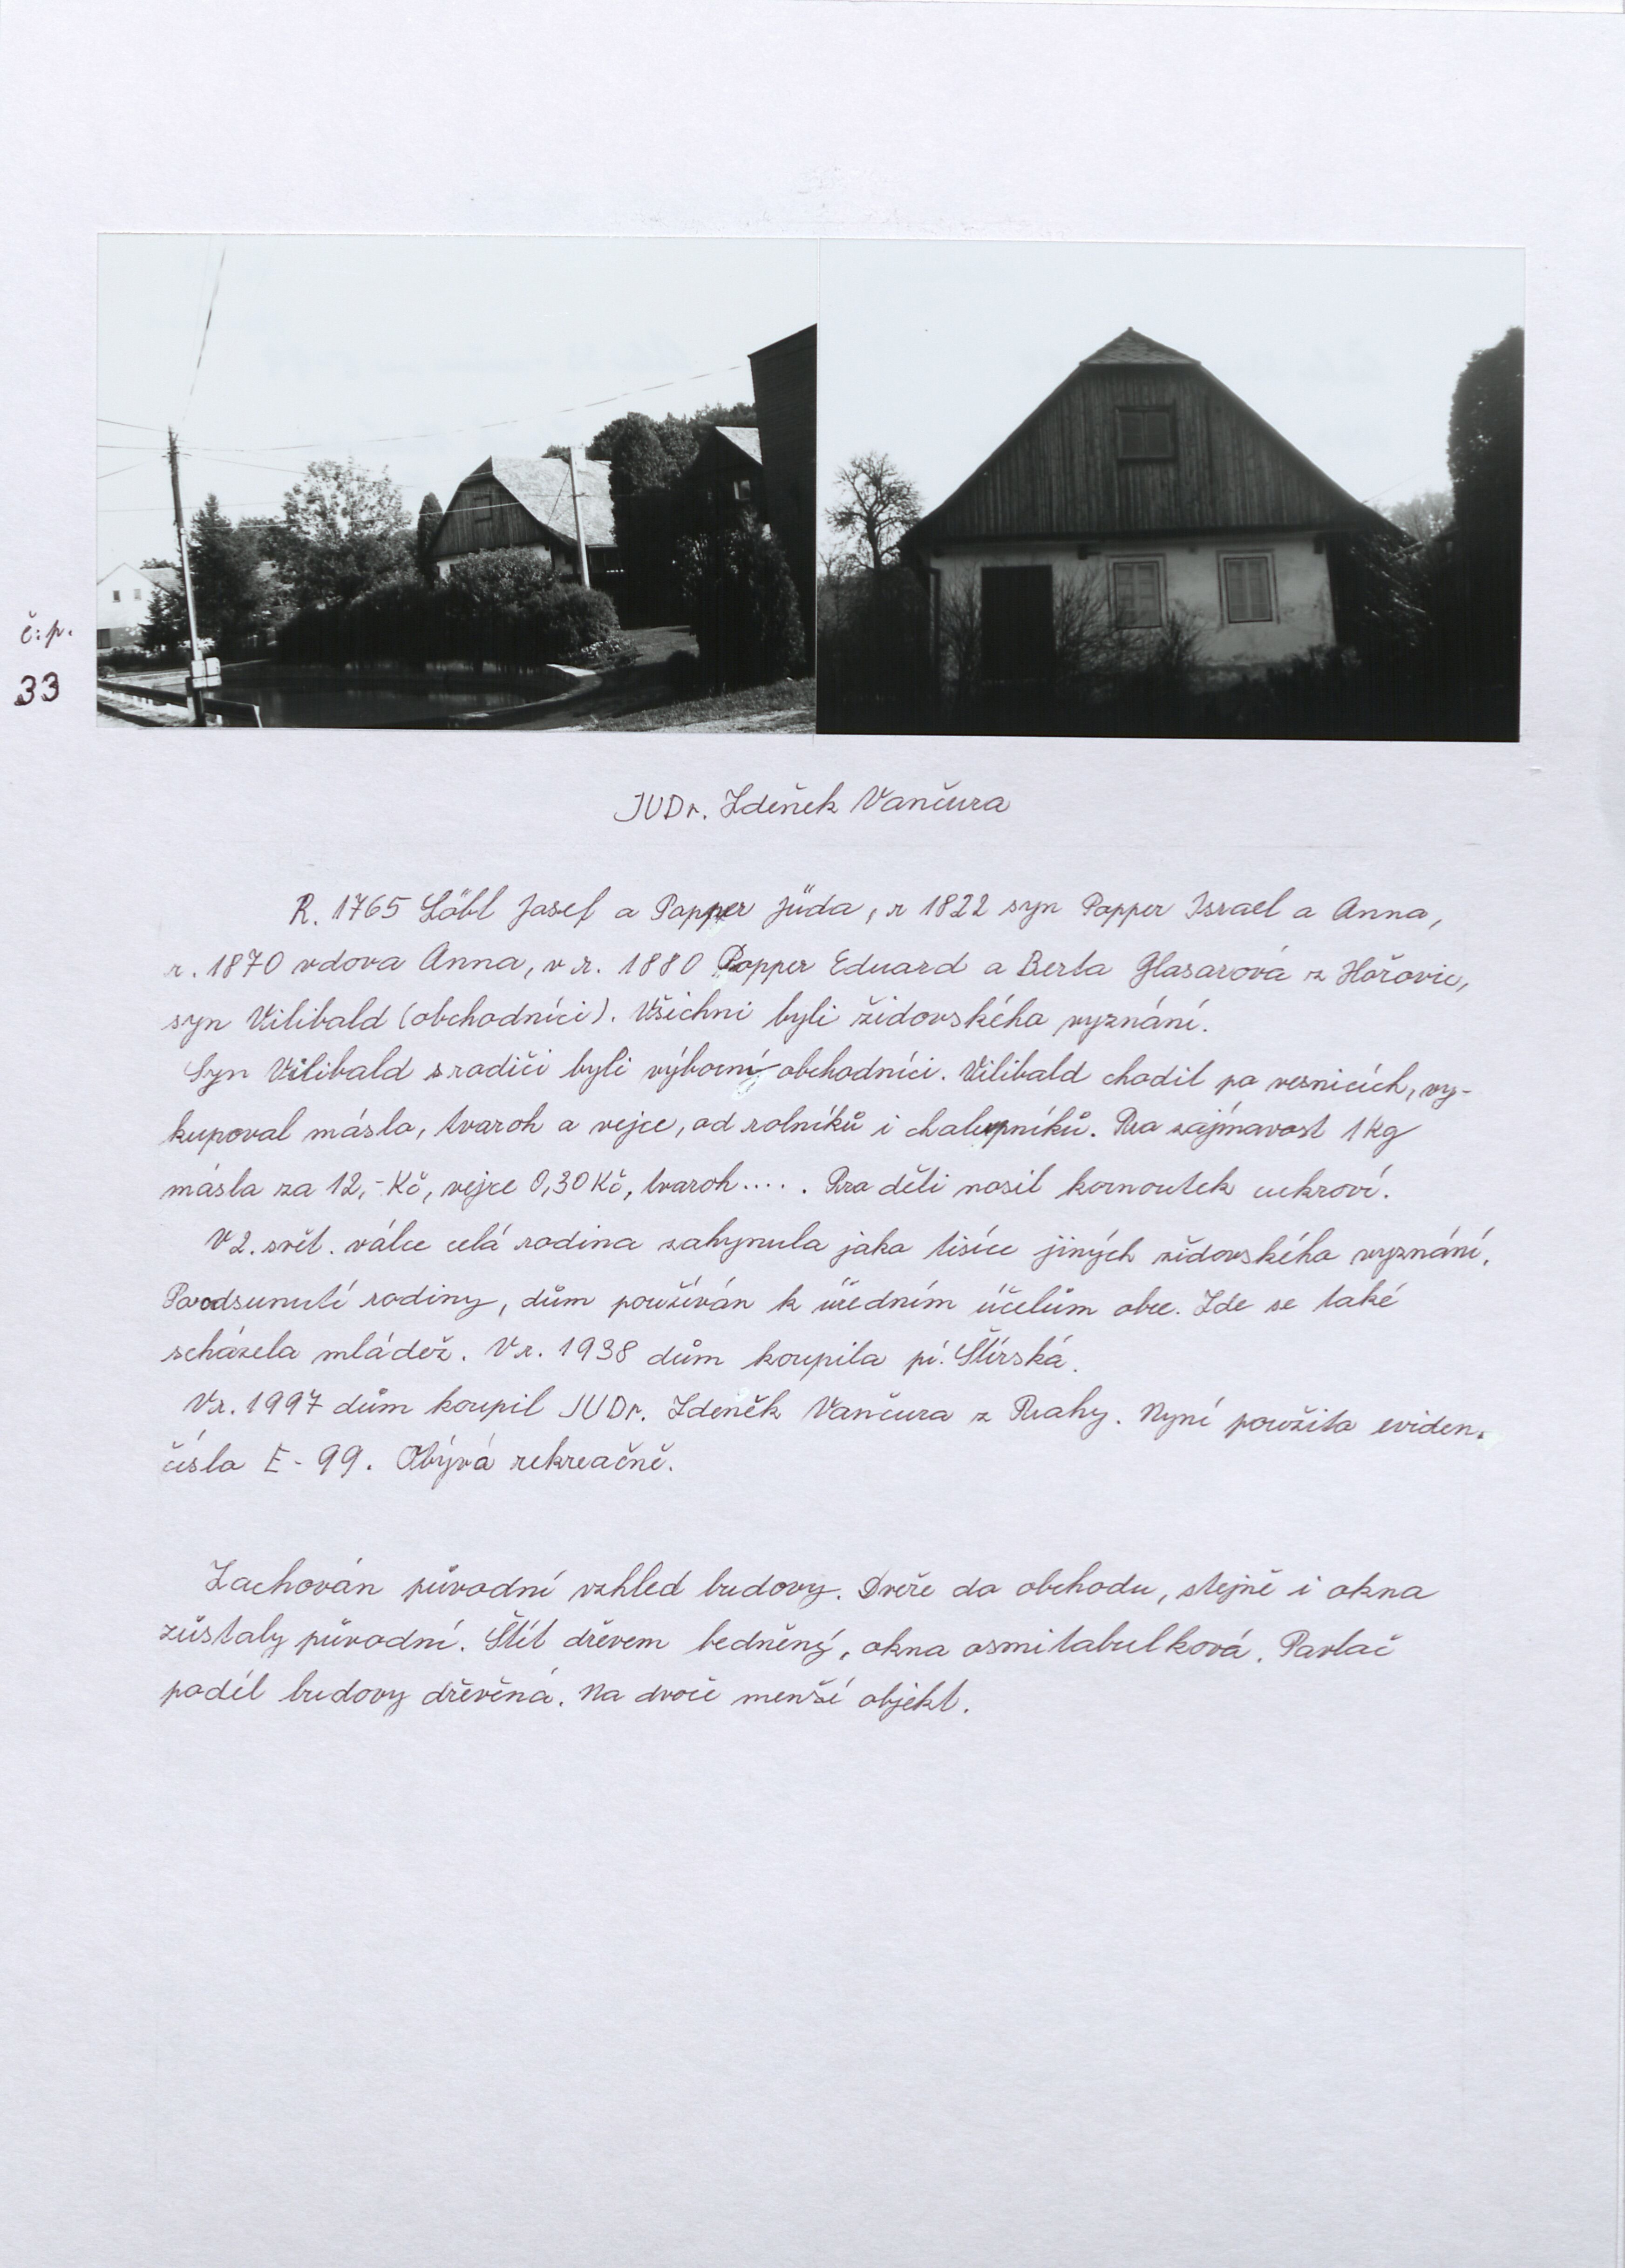 č.p.
33
JUDr. Zdeněk Vančura
R. 1765 Löbl Josef a Popper Jüda, r 1822 syn Popper Israel a Anna,
r. 1870 vdova Anna, v r. 1880 Popper Eduard a Berta Glasarová z Hořovic,
syn Vilibald (obchodníci). Všichni byli židovského vyznání.
Syn Vilibald s rodiči byli výborní obchodníci. Vilibald chodil po vesnicích, vy-
kupoval máslo, tvaroh a vejce, od rolníků i chalupníků. Pro zajímavost 1 kg
másla za 12,- Kč, vejce 0,30 Kč, tvaroh..... Pro děti nosil kornoutek cukroví.
V 2. svět. válce celá rodina zahynula jako tisíce jiných židovského vyznání.
Po odsunutí rodiny, dům používán k úředním účelům obce. Zde se také
scházela mládež. V r. 1938 dům koupila pí. Štírská.
V r. 1997 dům koupil JUDr. Zdeněk Vančura z Prahy. Nyní použito eviden.
číslo E - 99. Obývá rekreačně.
Zachován původní vzhled budovy. Dveře do obchodu, stejně i okna
zůstaly původní. Štít dřevem bedněný, okna osmitabulková. Pavlač
podél budovy dřevěná. Na dvoře menší objekt.